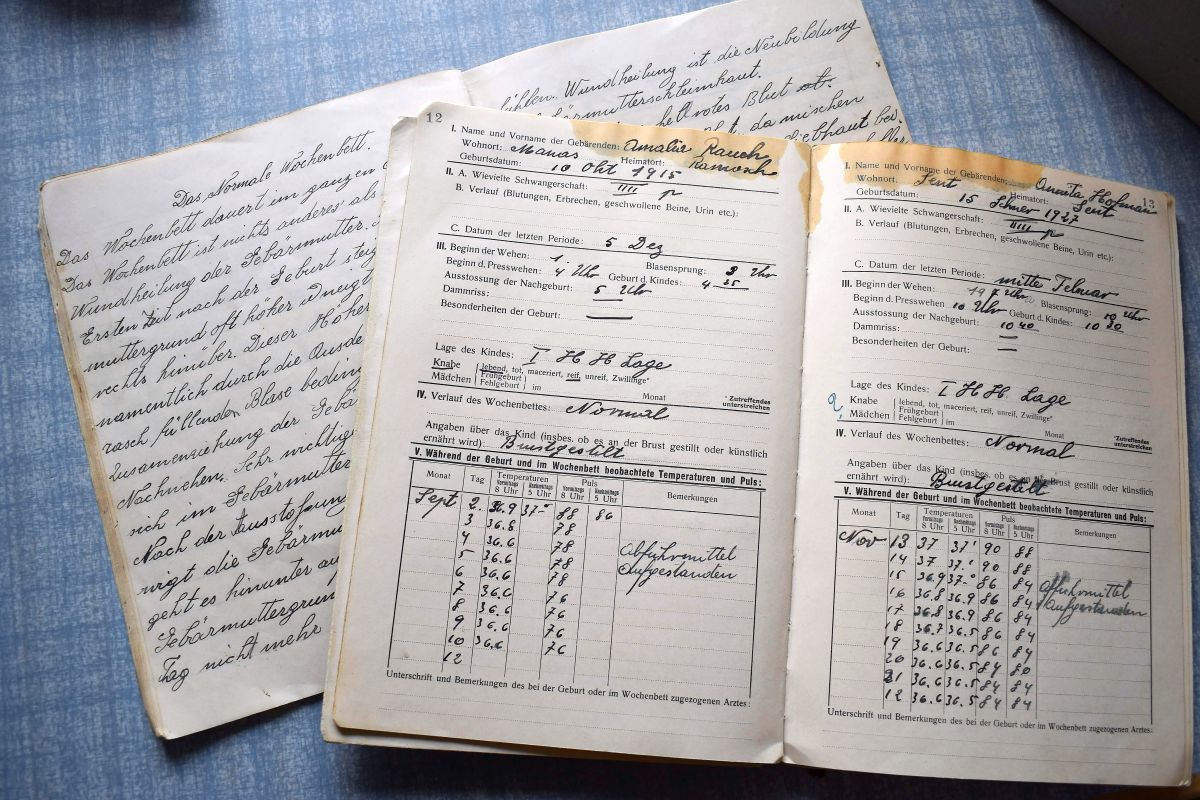 Das Normale Wochenbett.
Das Wochenbett dauert im ganzen
Das Wochenbett ist nichts anderes als
Wundheilung der Gebärmutter.
Ersten Teil nach der Geburt steig
muttergrund oft höher u neigt
rechts hinüber. Dieser Höher
namentlich durch die Ausde
rasch füllenden Blase beding
Zusamenziehung der Gebär
Nachwehen. Sehr wichtig
sich im Gebärmutter
Nach der Ausstoßung
wigt die Gebärmu
geht es hinunter au
Gebärmuttergrun
Tag nicht mehr
ühlen. Wundheilung ist die Neubildung
bärmutterschleimhaut.
rotes Blut
da mischen
12
I. Name und Vorname der Gebärenden: Amalia Rauch
Wohnort: Manas Heimatort: Ramosch
Geburtsdatum: 10 Okt 1915
II. A. Wievielte Schwangerschaft: IIII p
B. Verlauf (Blutungen, Erbrechen, geschwollene Beine, Urin etc.):
C. Datum der letzten Periode: 5 Dez
III. Beginn der Wehen: 1. Blasensprung: 3 Uhr
Beginn d. Presswehen: 4 Uhr Geburt d. Kindes: 4 25
Ausstossung der Nachgeburt: 5 Uhr
Dammriss: —
Besonderheiten der Geburt:
Lage des Kindes: I H H Lage
Knabe lebend, tot, maceriert, reif, unreif, Zwillinge*
Frühgeburt
Mädchen Fehlgeburt im Monat *Zutreffendes unterstreichen
IV. Verlauf des Wochenbettes: Normal
Angaben über das Kind (insbes. ob es an der Brust gestillt oder künstlich
ernährt wird): Brustgestillt
V. Während der Geburt und im Wochenbett beobachtete Temperaturen und Puls:
Monat Tag Temperaturen Puls Bemerkungen
Vormittags 8 Uhr Nachmittags 5 Uhr Vormittags 8 Uhr Nachmittags 5 Uhr
Sept 2. 36.9 37.- 88 86
3 36.8 78
4 36.6 78 Abführmittel
5 36.6 78 Aufgestanden
6 36.6 78
7 36.6 76
8 36.6 76
9 36.6 76
10 36.6 76
12
Unterschrift und Bemerkungen des bei der Geburt oder im Wochenbett zugezogenen Arztes:
13
I. Name und Vorname der Gebärenden: Hofman
Wohnort: Sent Heimatort: Sent
Geburtsdatum: 15 1927
II. A. Wievielte Schwangerschaft: IIII p
B. Verlauf (Blutungen, Erbrechen, geschwollene Beine, Urin etc.):
C. Datum der letzten Periode: mitte Februar
III. Beginn der Wehen: 19 Uhr Blasensprung: 10 Uhr
Beginn d. Presswehen 10 Uhr Geburt d. Kindes: 10 30
Ausstossung der Nachgeburt: 10 40
Dammriss: —
Besonderheiten der Geburt: —
Lage des Kindes: I H H. Lage
Knabe lebend, tot, maceriert, reif, unreif, Zwillinge*
Frühgeburt
Mädchen Fehlgeburt im Monat *Zutreffendes unterstreichen
IV. Verlauf des Wochenbettes: Normal
Angaben über das Kind (insbes. ob es an der Brust gestillt oder künstlich
ernährt wird): Brustgestillt
V. Während der Geburt und im Wochenbett beobachtete Temperaturen und Puls:
Monat Tag Temperaturen Puls Bemerkungen
Vormittags 8 Uhr Nachmittags 5 Uhr Vormittags 8 Uhr Nachmittags 5 Uhr
Nov 13 37 37' 90 88
14 37 37.' 90 88
15 36.9 37.° 86 84 Abführmittel
16 36.8 36.9 86 84 Aufgestanden
17 36.8 36.9 86 84
18 36.7 36.5 86 84
19 36.6 36.5 86 84
20 36.6 36.5 84 80
21 36.6 36.5 84 84
12 36.6 36.5 84 84
Unterschrift und Bemerkungen des bei der Geburt oder im Wochenbett zugezogenen Arztes: